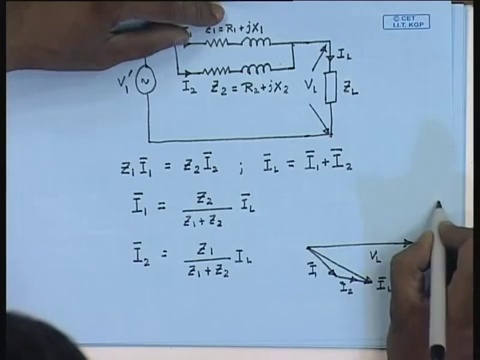 © CET
I.I.T. KGP
I̅₁ Z₁ = R₁ + jX₁
I̅₂ Z₂ = R₂ + jX₂
V₁′ V_L I̅_L Z_L
Z₁ I̅₁ = Z₂ I̅₂ ; I̅_L = I̅₁ + I̅₂
I̅₁ = Z₂ / (Z₁ + Z₂) I̅_L
I̅₂ = Z₁ / (Z₁ + Z₂) I_L
V_L
I̅₁ I̅₂ I̅_L